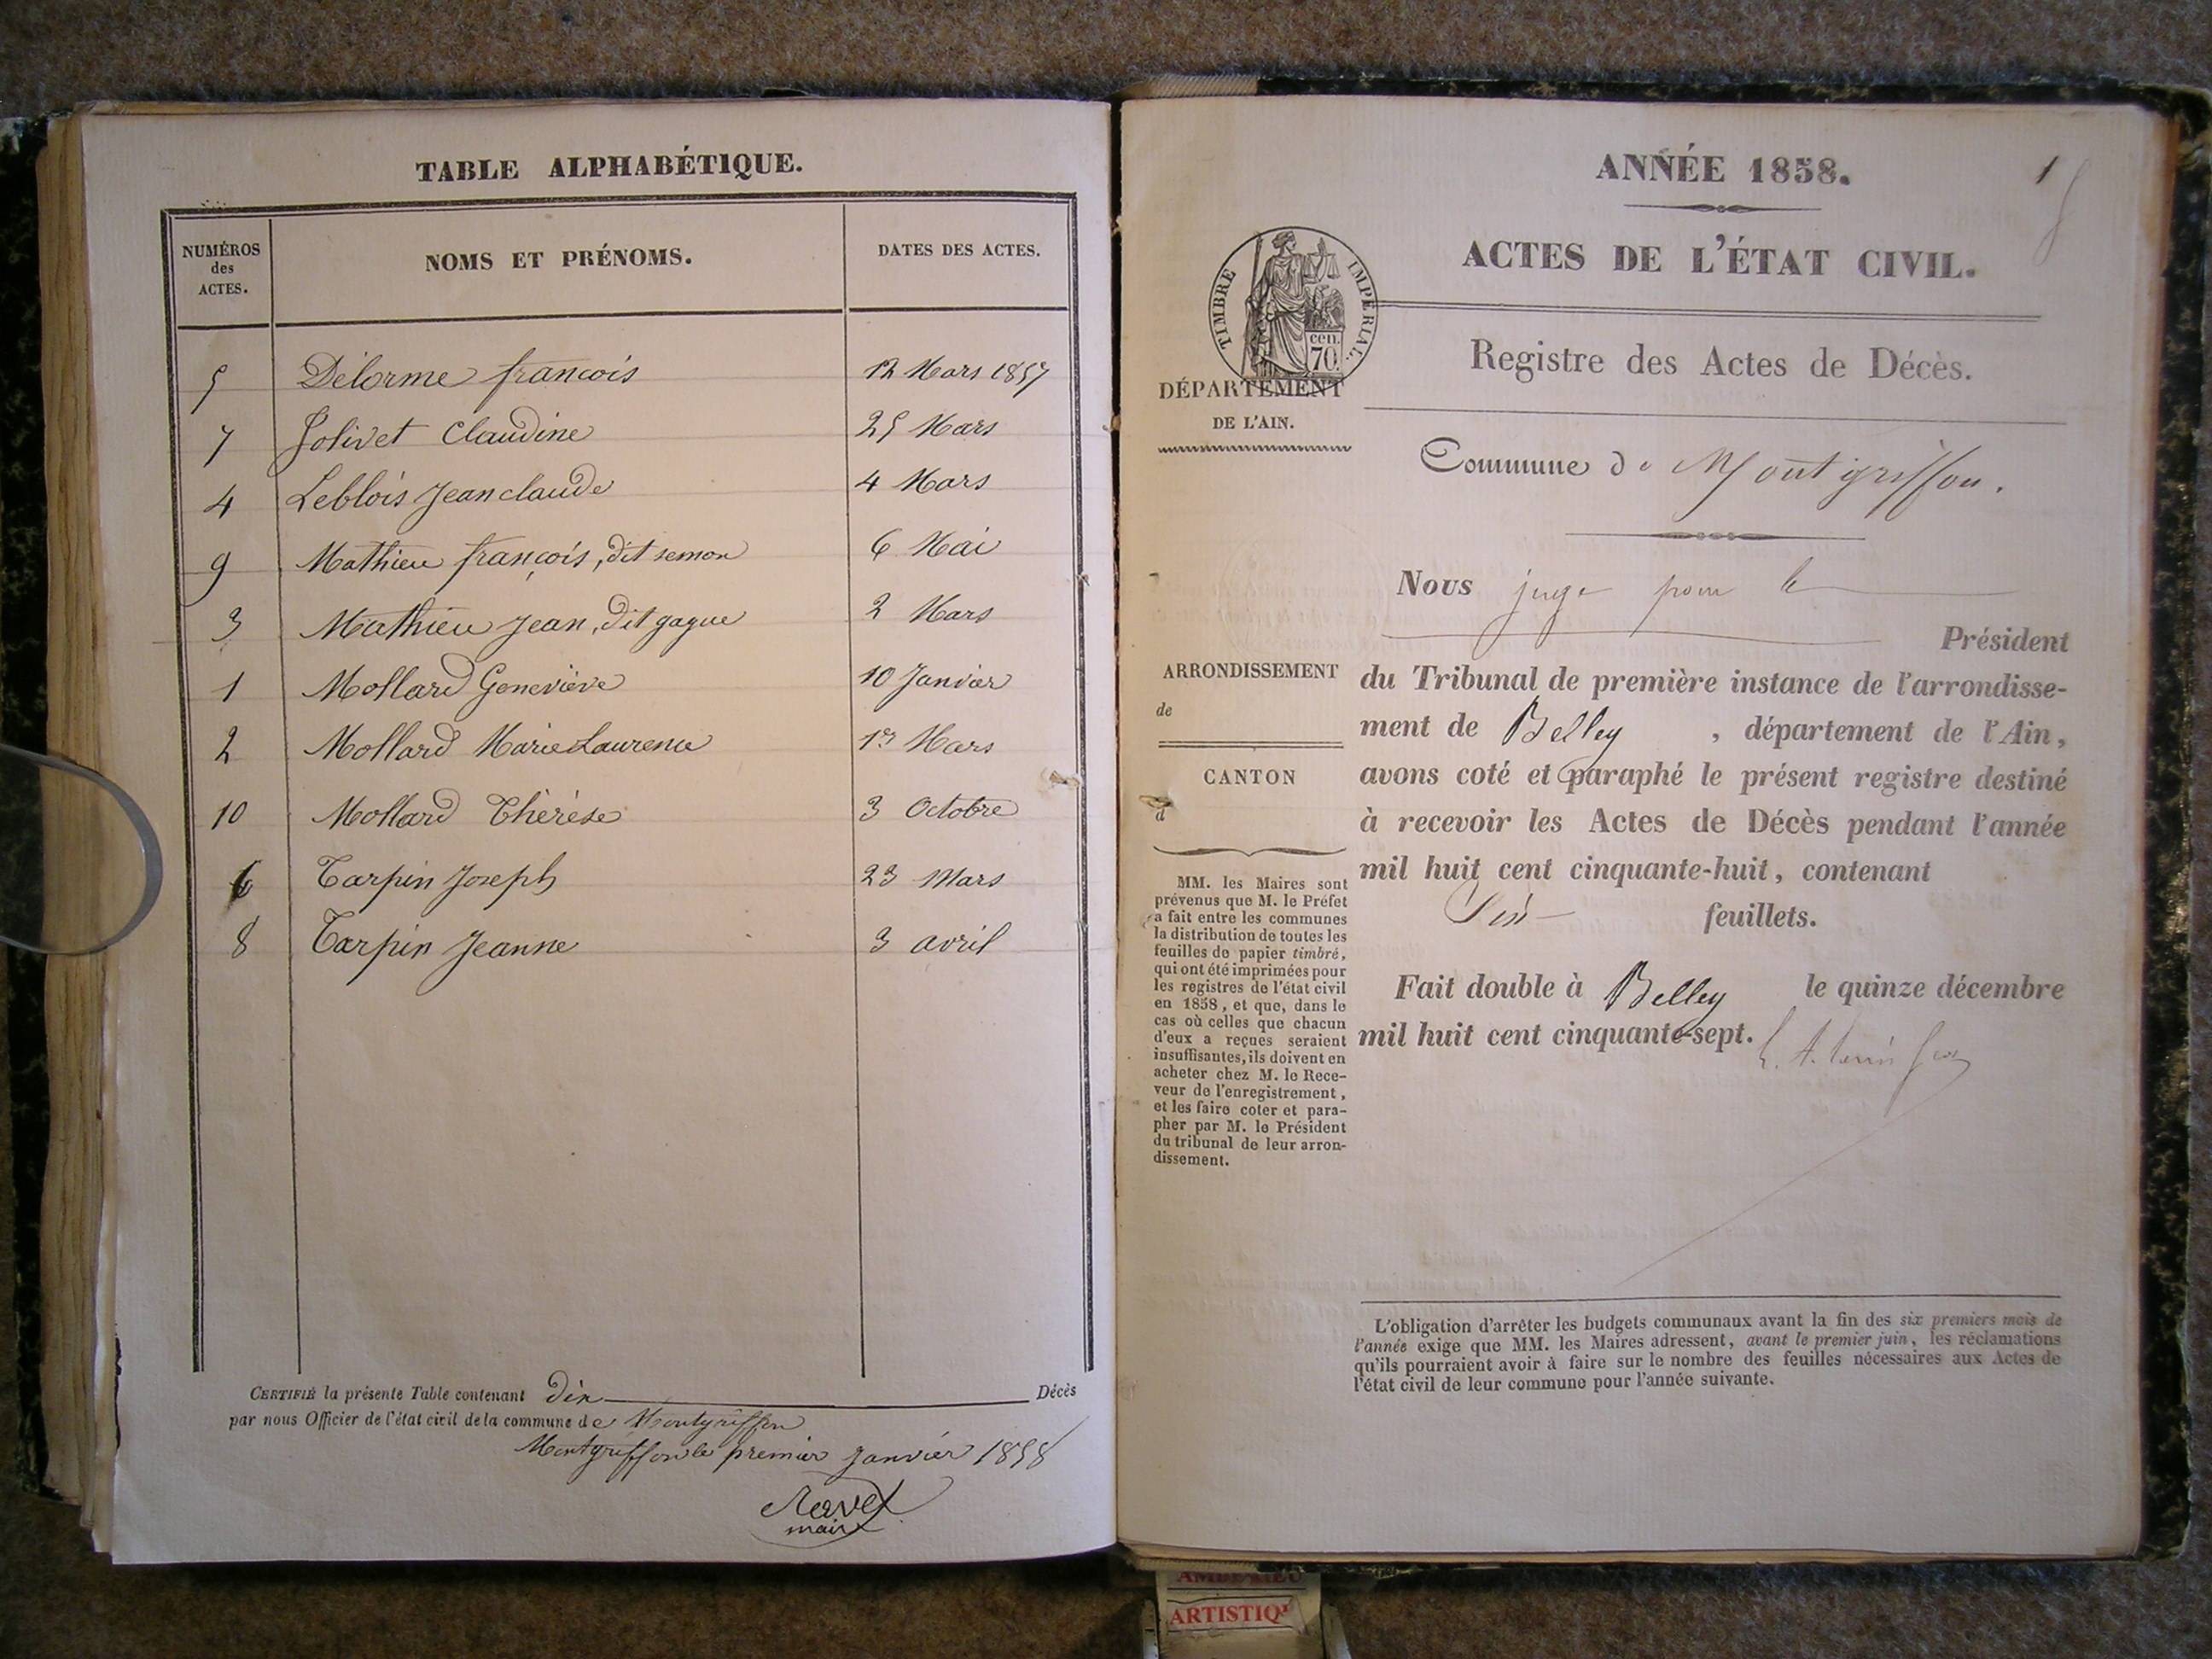 TABLE ALPHABÉTIQUE.
NUMÉROS des ACTES. NOMS ET PRÉNOMS. DATES DES ACTES.
5 Délorme françois 12 Mars 1857
7 Jolivet Claudine 25 Mars
4 Leblois Jean claude 4 Mars
9 Mathieu françois, dit semon 6 Mai
3 Mathieu Jean, dit gague 2 Mars
1 Mollard Geneviève 10 Janvier
2 Mollard Marie Laurence 1er Mars
10 Mollard Thérèse 3 Octobre
6 Tarpin Joseph 23 Mars
8 Tarpin Jeanne 3 avril
CERTIFIÉ la présente Table contenant dix Décès
par nous Officier de l'état civil de la commune de Montgriffon
Montgriffon le premier Janvier 1858
maire
ANNÉE 1858.
1
ACTES DE L'ÉTAT CIVIL.
TIMBRE IMPÉRIAL.
cen.
70.
DÉPARTEMENT
DE L'AIN.
Registre des Actes de Décès.
Commune de Montgriffon.
Nous juge pour le
Président
du Tribunal de première instance de l'arrondisse-
ment de Belley , département de l'Ain,
avons coté et paraphé le présent registre destiné
à recevoir les Actes de Décès pendant l'année
mil huit cent cinquante-huit, contenant
feuillets.
Fait double à Belley le quinze décembre
mil huit cent cinquante-sept.
ARRONDISSEMENT
de
CANTON
d
MM. les Maires sont
prévenus que M. le Préfet
a fait entre les communes
la distribution de toutes les
feuilles de papier timbré,
qui ont été imprimées pour
les registres de l'état civil
en 1858, et que, dans le
cas où celles que chacun
d'eux a reçues seraient
insuffisantes, ils doivent en
acheter chez M. le Rece-
veur de l'enregistrement,
et les faire coter et para-
pher par M. le Président
du tribunal de leur arron-
dissement.
L'obligation d'arrêter les budgets communaux avant la fin des six premiers mois de
l'année exige que MM. les Maires adressent, avant le premier juin, les réclamations
qu'ils pourraient avoir à faire sur le nombre des feuilles nécessaires aux Actes de
l'état civil de leur commune pour l'année suivante.